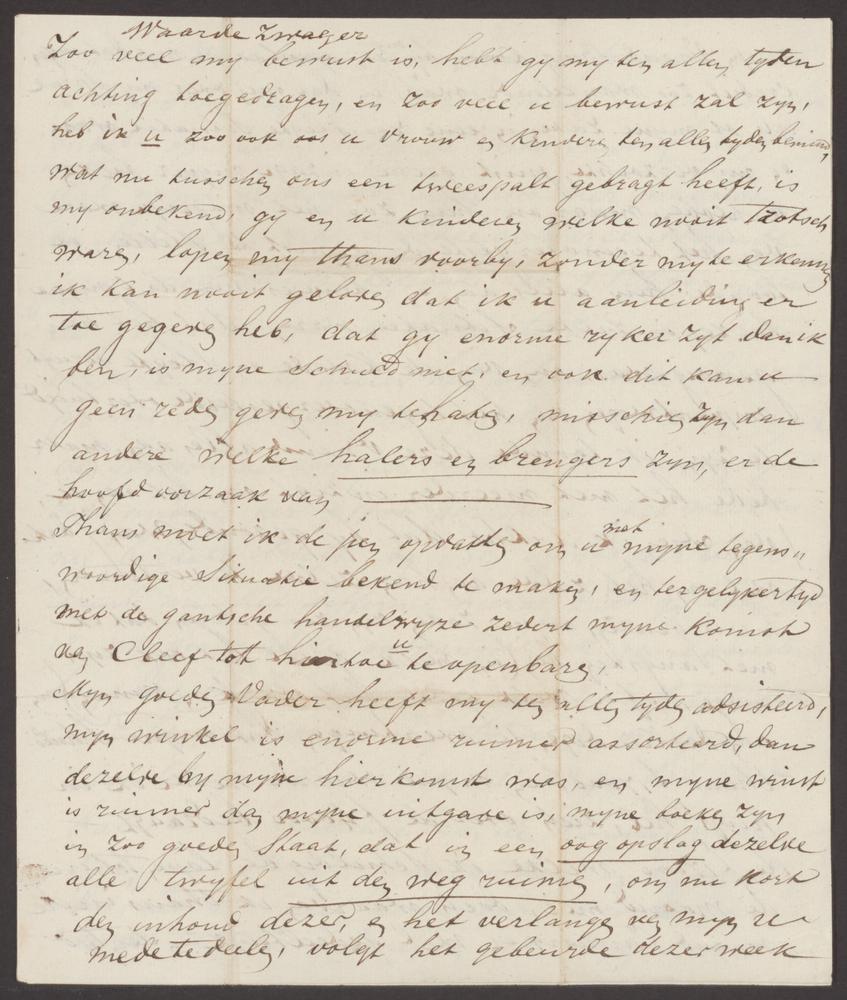 Waarde Zwager
Zoo veel my bewust is, hebt gy my ten allen tyden
achting toegedragen, en zoo veel u bewust zal zyn,
heb ik u zoo ook as u vrouw en Kinderen ten allen tyden bemind,
wat nu tusschen ons een tweespalt gebragt heeft, is
my onbekend, gy en u Kinderen welke nooit trotsch
waren, lopen my thans voorby, zonder my te erkennen
ik kan nooit geloven dat ik u aanleiding er
toe gegeven heb, dat gy enorme ryker zyt dan ik
ben, is myne Schuld niet, en ook dit kan u
geen reden geven my te haten, misschien zyn dan
andere welke halers en brengers zyn, er de
hoofd oorzaak van
Thans moet ik de pen opvatten om u met myne tegens„
woordige Situatie bekend te maken, en tergelykertyd
met de gantsche handelwyze zedert myne Komst
van Cleef tot hiertoe u te openbaren,
Myn goeden Vader heeft my ten allen tyden adsisteerd,
myn winkel is enorme ruimer assorteerd, dan
dezelve by myne hierkomst was, en myne winst
is ruimer dan myne uitgave is, myne boeken zyn
in zoo goeden Staat, dat in een oog opslag dezelve
alle twyfel uit den weg ruimen, om nu kort
den inhoud dezer, en het verlangen van myn u
mede te deelen, volgt het gebeurde dezer week